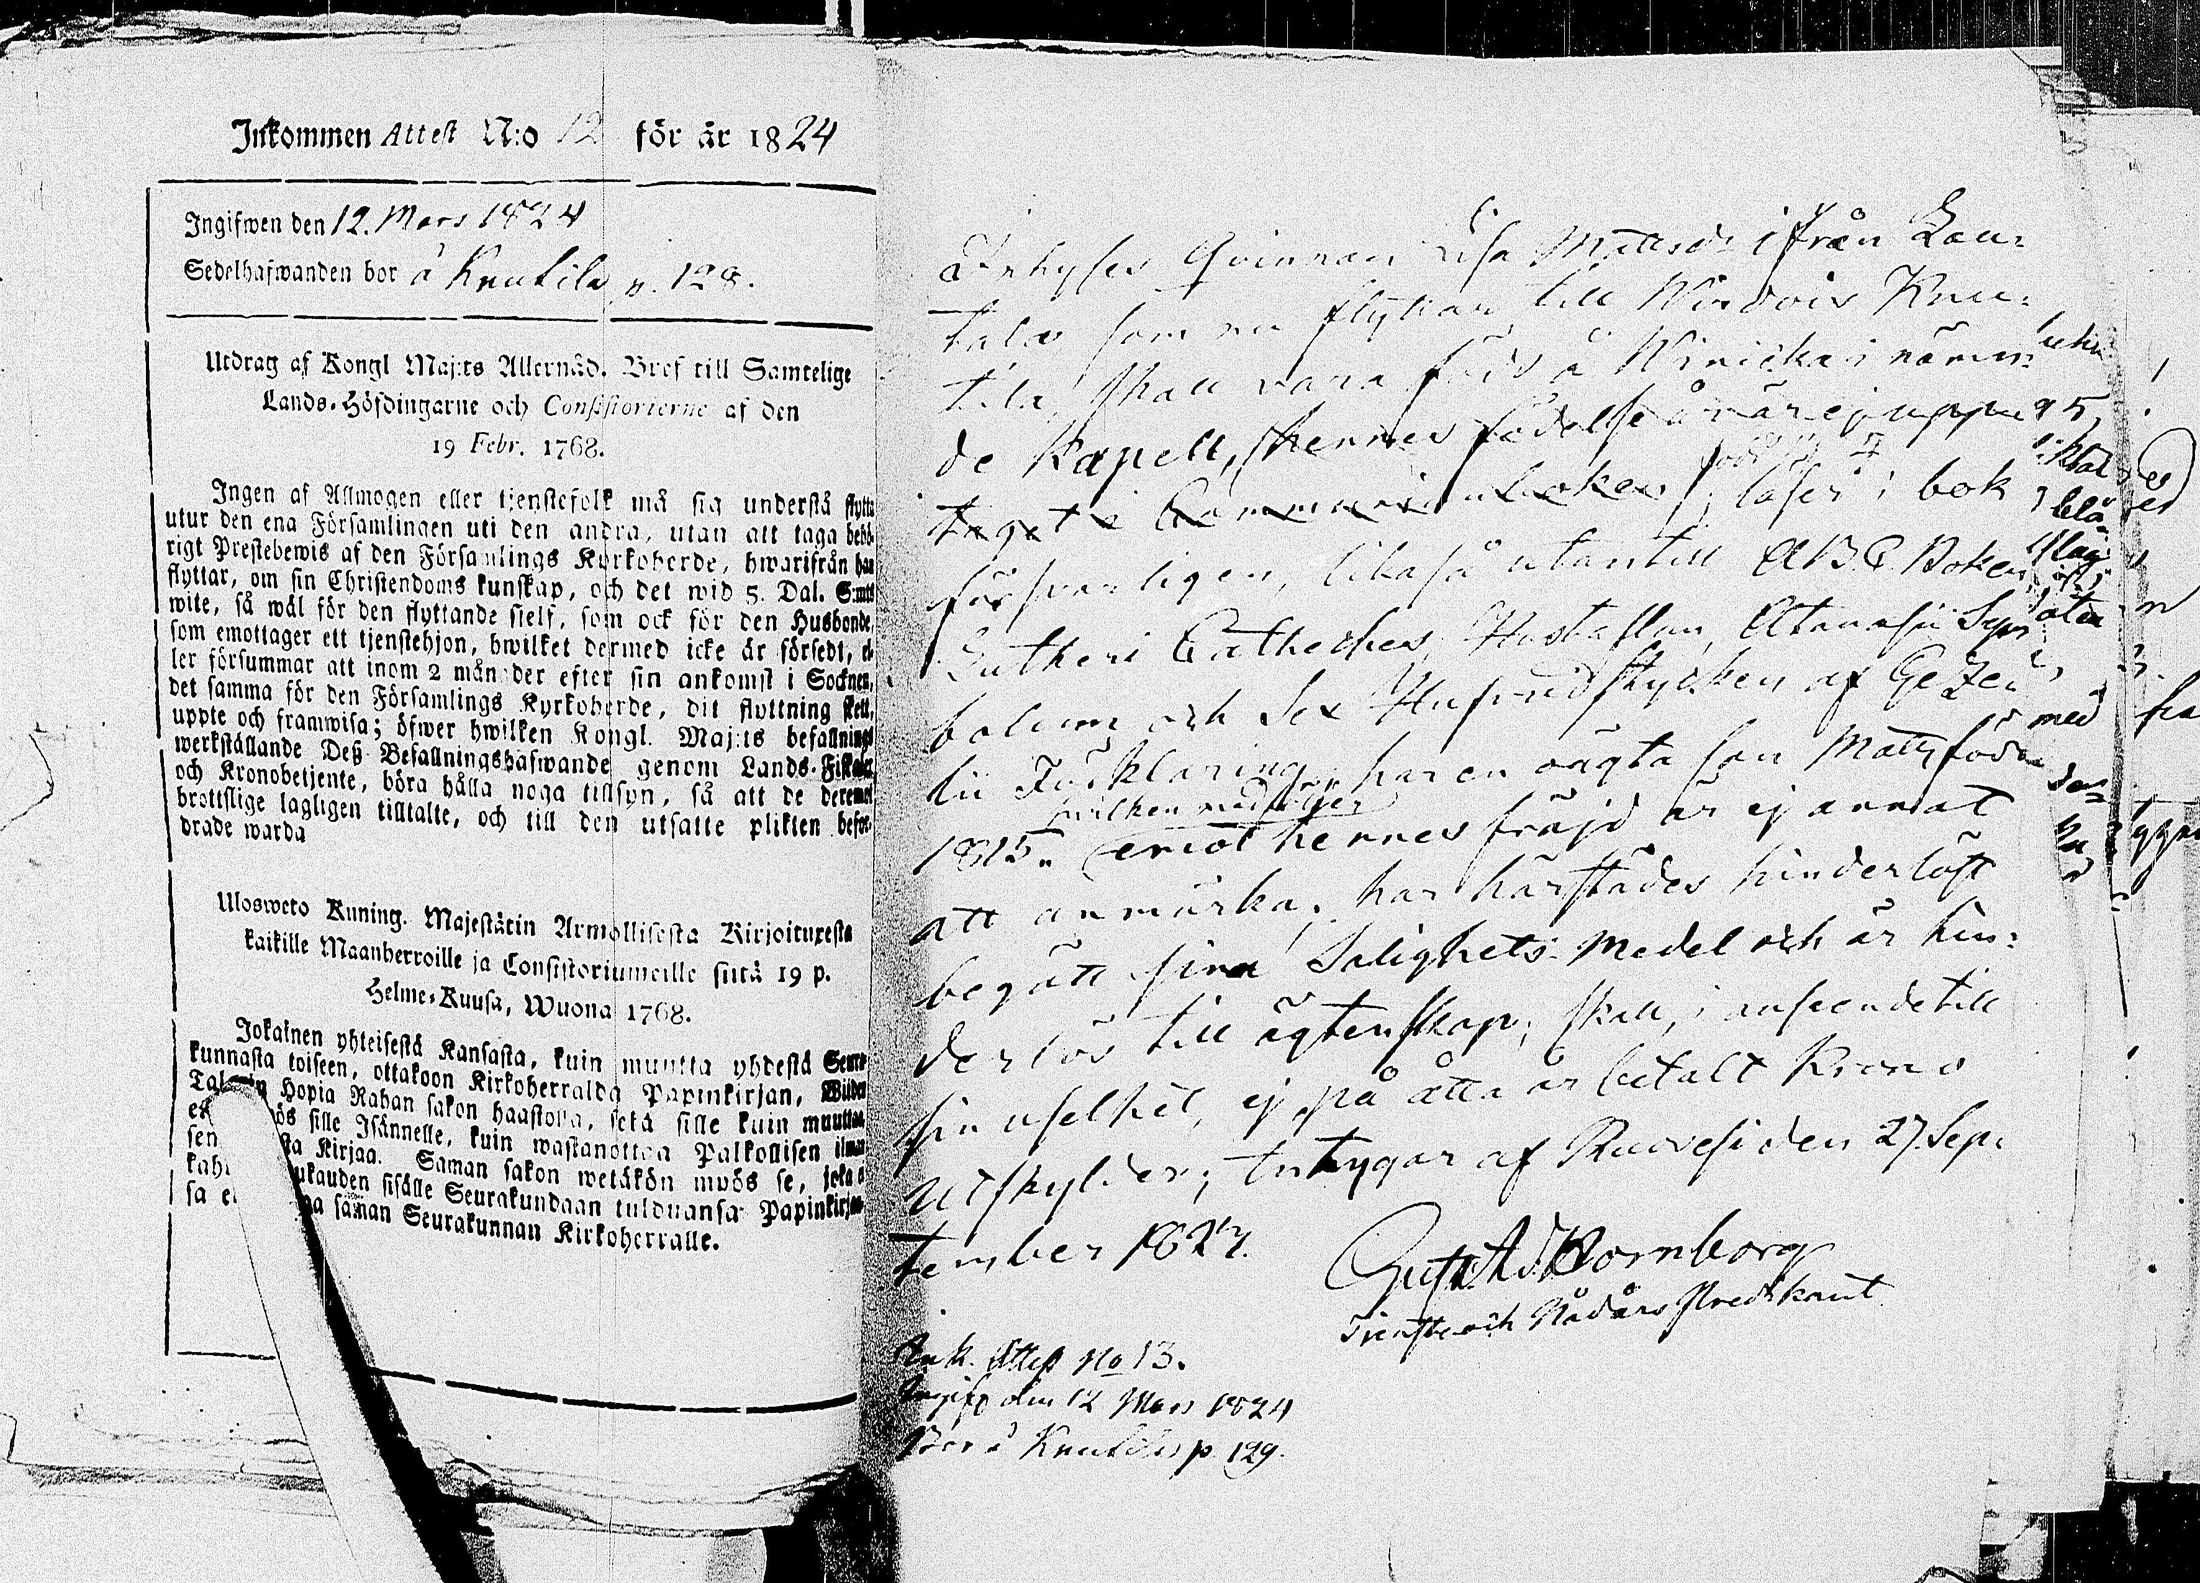 Inkommen Attest N:o 12 för år 1824
Ingifwen den 12. Mars 1824
Sedelhafwanden bor å Knutila p. 128.
Utdrag af Kongl Maj:ts Allernåd. Bref till Samtelige
Lands-Höfdingarne och Consistorierne af den
19 Febr. 1768.
Ingen af Allmogen eller tjenstefolk må sig understå flytta
utur den ena Församlingen uti den andra, utan att taga behö-
rigt Prestebewis af den Församlings Kyrkoherde, hwarifrån han
flyttar, om sin Christendoms kunskap, och det wid 5. Dal. S:mts
wite, så wäl för den flyttande sielf, som ock för den Husbonde,
som emottager ett tjenstehjon, hwilket dermed icke är försedt, el-
ler försummar att inom 2 månader efter sin ankomst i Socknen,
det samma för den Församlings Kyrkoherde, dit flyttning skett,
uppte och framwisa; öfwer hwilken Kongl. Maj:ts befallnings
werkställande Deß Befallningshafwande genom Lands-Fiskaler
och Kronobetjente, böra hålla noga tillsyn, så att de deremot
brottslige lagligen tilltalte, och till den utsatte plikten befor-
drade warda
Ulosweto Kuning. Majestätin Armollisesta Kirjoituxesta
kaikille Maanherroille ja Consistoriumeille siitä 19 p.
Helme-Kuusa, Wuona 1768.
Jokainen yhteisestä Kansasta, kuin muutta yhdestä Seura-
kunnasta toiseen, ottakoon Kirkoherralda Papinkirjan, Wiiden
Talarin Hopia Rahan sakon haastolla, sekä sille kuin muuttaa
sille Isännelle, kuin wastanottaa Palkollisen ilman
Kirjaa. Saman sakon wetäkön myös se, joka
kukauden sisälle Seurakundaan tulduansa Papinkirjan
saman Seurakunnan Kirkoherralle.
Inhyses Qvinnan Lisa Mattsdr ifrån Lau-
tala som nu flyttar till Wirdois Knu-
tila, skall vara född å Wiricka i nämn-
de Kapell, hennes födelse år är ej uppta
taget i Communionboken; läser i bok
försvarligen, likaså utantill A.B.C. Boken,
Lutheri Cathches, Hustaflan, Atanasii Sym
bolum och Sex Hufvudstycken af Geze
lii Förklaring, har en oägta son Matts född
hvilken medföljer
1815. emot hennes fräjd är ej annat
att anmärka, har härstädes hinderlöst
begått sina Salighets Medel och är hin-
derlös till ägtenskap; skall, i anseende till
sin uselhet, ej på åtta år betalt Krono
Utskylder; intygar af Ruovesi den 27 Sep-
tember 1823.
Gust. Ad. Bornborg
Tjenste och Nådårs Predikant
Ink. Attest No 13.
Ingifv den 12 Mars 1824
Bor å Knutila p. 129.